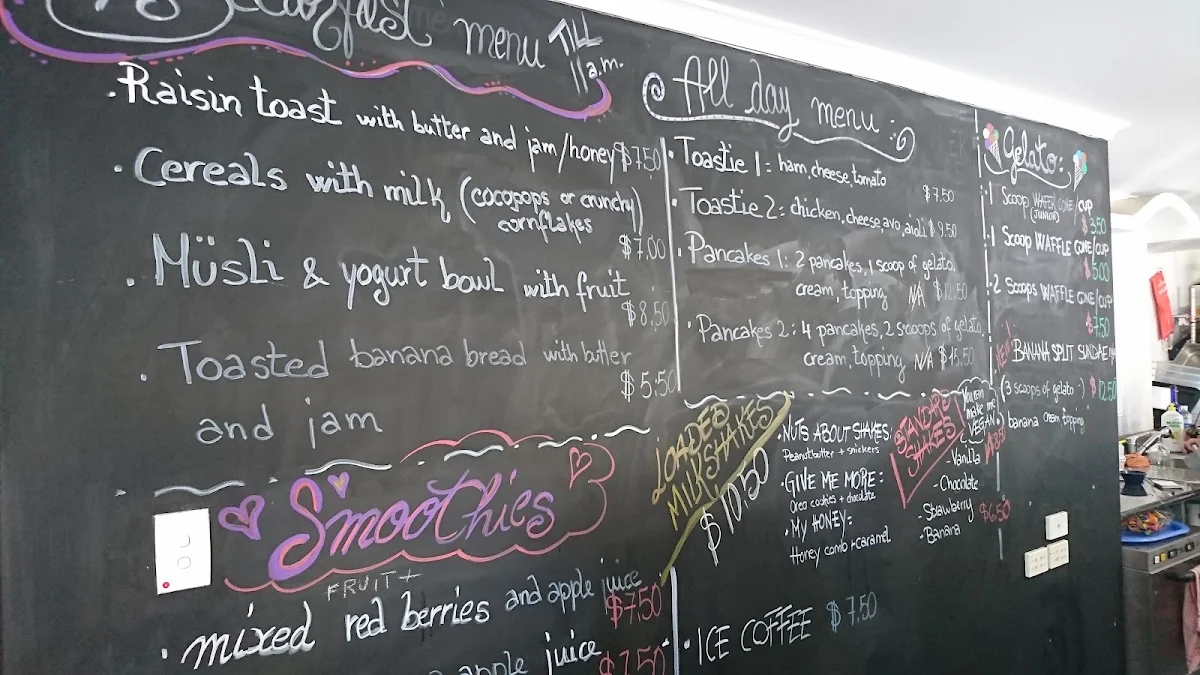 Breakfast menu TILL
11a.m.
• Raisin toast with butter and jam/honey $7.50
• Cereals with milk (cocopops or crunchy)
cornflakes
$7.00
• Müsli & yogurt bowl with fruit
$8.50
• Toasted banana bread with butter
$5.50
and jam
Smoothies
FRUIT+
• mixed red berries and apple juice
$7.50
apple juice
$7.50
All day menu :
• Toastie 1 : ham, cheese, tomato
$7.50
• Toastie 2 : chicken, cheese avo, aioli $9.50
• Pancakes 1 : 2 pancakes, 1 scoop of gelato,
cream, topping N/A $12.50
• Pancakes 2 : 4 pancakes, 2 scoops of gelato,
cream, topping N/A $15,50
LOADED
MILKSHAKES
$10.50
• NUTS ABOUT SHAKES:
Peanutbutter + snickers
• GIVE ME MORE:
Oreo cookies + chocolate
• MY HONEY:
Honey comb + caramel
STANDARD
SHAKES
You can
make me
VEGAN
- Vanilla
- Chocolate
- Strawberry $6.50
- Banana
• ICE COFFEE $7.50
Gelato:
• 1 Scoop WAFER CONE/CUP
(JUNIOR) $3.50
• 1 Scoop WAFFLE CONE/CUP
$5.00
• 2 Scoops WAFFLE CONE/CUP
$7.50
NEW
BANANA SPLIT SUNDAE
(3 scoops of gelato -) $12.50
banana cream topping